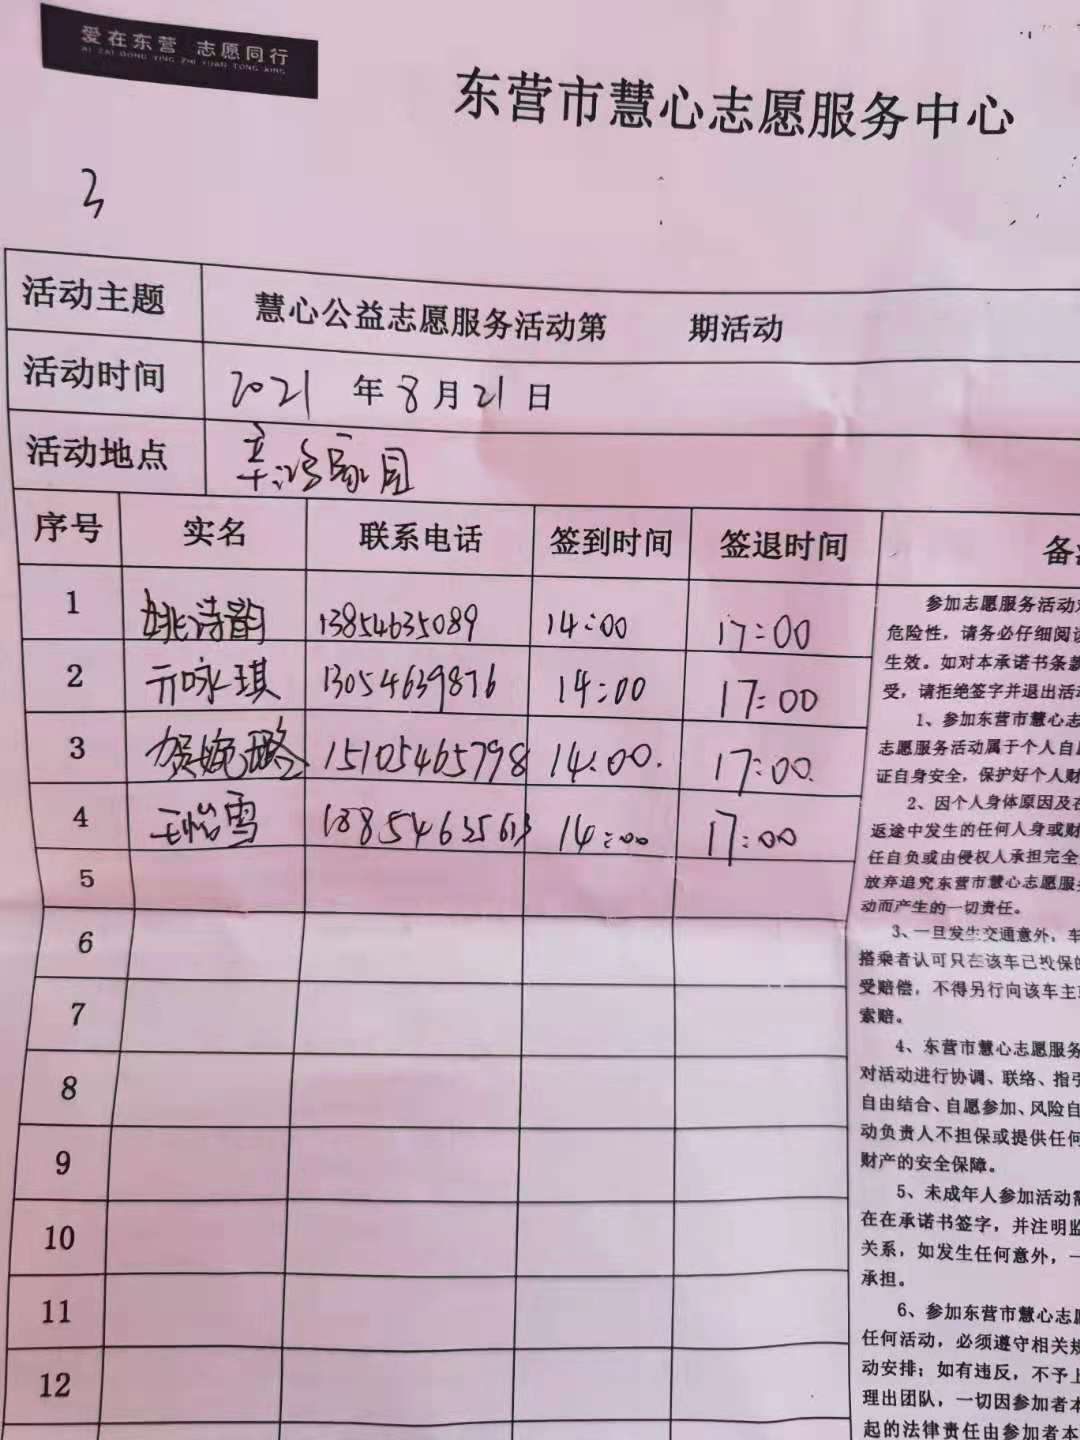 爱在东营 志愿同行
AI ZAI DONG YING ZHI YUAN TONG XING
东营市慧心志愿服务中心
3
活动主题 慧心公益志愿服务活动第 期活动
活动时间 2021 年 8 月 21 日
活动地点 辛冶家园
序号 实名 联系电话 签到时间 签退时间 备
1 姚诗韵 13854635089 14:00 17:00
2 亓咏琪 13054639876 14:00 17:00
3 贺婉璐 15105465798 14:00. 17:00.
4 王怡雪 14:00 17:00
5
6
7
8
9
10
11
12
参加志愿服务活动
危险性，请务必仔细阅读
生效。如对本承诺书条款
受，请拒绝签字并退出活动
1、参加东营市慧心志
志愿服务活动属于个人自愿
证自身安全，保护好个人财
2、因个人身体原因及在
返途中发生的任何人身或财
任自负或由侵权人承担完全
放弃追究东营市慧心志愿服
动而产生的一切责任。
3、一旦发生交通意外，车
搭乘者认可只在该车已投保的
受赔偿，不得另行向该车主
索赔。
4、东营市慧心志愿服务
对活动进行协调、联络、指引
自由结合、自愿参加、风险自
动负责人不担保或提供任何
财产的安全保障。
5、未成年人参加活动需
在在承诺书签字，并注明监
关系，如发生任何意外，一
承担。
6、参加东营市慧心志愿
任何活动，必须遵守相关规
动安排；如有违反，不予上
理出团队，一切因参加者本
起的法律责任由参加者本